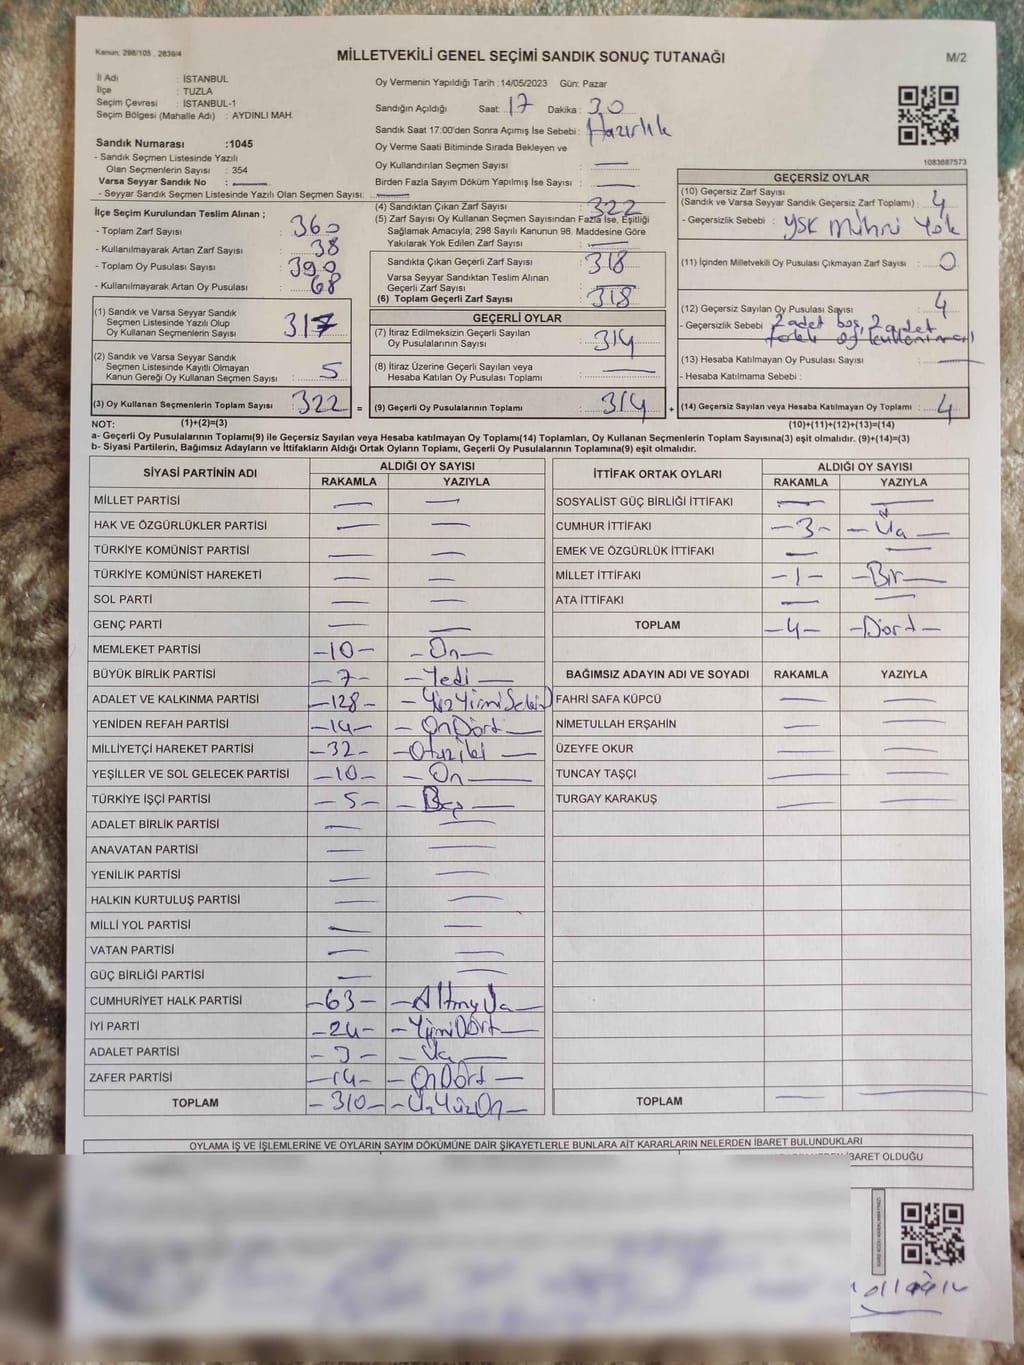 Kanun: 298/105 , 2839/4
MİLLETVEKİLİ GENEL SEÇİMİ SANDIK SONUÇ TUTANAĞI
M/2
İl Adı : İSTANBUL
İlçe : TUZLA
Seçim Çevresi : İSTANBUL-1
Seçim Bölgesi (Mahalle Adı) : AYDINLI MAH.
Sandık Numarası :1045
- Sandık Seçmen Listesinde Yazılı
Olan Seçmenlerin Sayısı : 354
Varsa Seyyar Sandık No :
- Seyyar Sandık Seçmen Listesinde Yazılı Olan Seçmen Sayısı:
Oy Vermenin Yapıldığı Tarih :14/05/2023 Gün: Pazar
Sandığın Açıldığı Saat: 17 Dakika : 30
Sandık Saat 17:00'den Sonra Açılmış İse Sebebi : Hazırlık
Oy Verme Saati Bitiminde Sırada Bekleyen ve
Oy Kullandırılan Seçmen Sayısı :
Birden Fazla Sayım Döküm Yapılmış İse Sayısı :
1083687573
İlçe Seçim Kurulundan Teslim Alınan ;
- Toplam Zarf Sayısı : 360
- Kullanılmayarak Artan Zarf Sayısı : 38
- Toplam Oy Pusulası Sayısı : 390
- Kullanılmayarak Artan Oy Pusulası : 68
(1) Sandık ve Varsa Seyyar Sandık
Seçmen Listesinde Yazılı Olup
Oy Kullanan Seçmenlerin Sayısı : 317
(2) Sandık ve Varsa Seyyar Sandık
Seçmen Listesinde Kayıtlı Olmayan
Kanun Gereği Oy Kullanan Seçmen Sayısı : 5
(3) Oy Kullanan Seçmenlerin Toplam Sayısı : 322 =
(4) Sandıktan Çıkan Zarf Sayısı : 322
(5) Zarf Sayısı Oy Kullanan Seçmen Sayısından Fazla İse, Eşitliği
Sağlamak Amacıyla; 298 Sayılı Kanunun 98. Maddesine Göre
Yakılarak Yok Edilen Zarf Sayısı :
Sandıkta Çıkan Geçerli Zarf Sayısı : 318
Varsa Seyyar Sandıktan Teslim Alınan
Geçerli Zarf Sayısı :
(6) Toplam Geçerli Zarf Sayısı : 318
GEÇERLİ OYLAR
(7) İtiraz Edilmeksizin Geçerli Sayılan
Oy Pusulalarının Sayısı : 314
(8) İtiraz Üzerine Geçerli Sayılan veya
Hesaba Katılan Oy Pusulası Toplamı :
(9) Geçerli Oy Pusulalarının Toplamı : 314 +
GEÇERSİZ OYLAR
(10) Geçersiz Zarf Sayısı
(Sandık ve Varsa Seyyar Sandık Geçersiz Zarf Toplamı) : 4
- Geçersizlik Sebebi : YSK Mührü Yok
(11) İçinden Milletvekili Oy Pusulası Çıkmayan Zarf Sayısı : 0
(12) Geçersiz Sayılan Oy Pusulası Sayısı : 4
- Geçersizlik Sebebi : 2 adet boş, 2 adet
oy kullanımı
(13) Hesaba Katılmayan Oy Pusulası Sayısı :
- Hesaba Katılmama Sebebi :
(14) Geçersiz Sayılan veya Hesaba Katılmayan Oy Toplamı : 4
NOT: (1)+(2)=(3) (10)+(11)+(12)+(13)=(14)
a- Geçerli Oy Pusulalarının Toplamı(9) ile Geçersiz Sayılan veya Hesaba katılmayan Oy Toplamı(14) Toplamları, Oy Kullanan Seçmenlerin Toplam Sayısına(3) eşit olmalıdır. (9)+(14)=(3)
b- Siyasi Partilerin, Bağımsız Adayların ve İttifakların Aldığı Ortak Oyların Toplamı, Geçerli Oy Pusulalarının Toplamına(9) eşit olmalıdır.
SİYASİ PARTİNİN ADI ALDIĞI OY SAYISI
RAKAMLA YAZIYLA
MİLLET PARTİSİ
HAK VE ÖZGÜRLÜKLER PARTİSİ
TÜRKİYE KOMÜNİST PARTİSİ
TÜRKİYE KOMÜNİST HAREKETİ
SOL PARTİ
GENÇ PARTİ
MEMLEKET PARTİSİ -10- -On-
BÜYÜK BİRLİK PARTİSİ -7- -Yedi-
ADALET VE KALKINMA PARTİSİ -128- -YüzYirmiSekiz
YENİDEN REFAH PARTİSİ -14- -OnDört-
MİLLİYETÇİ HAREKET PARTİSİ -32- -Otuziki-
YEŞİLLER VE SOL GELECEK PARTİSİ -10- -On-
TÜRKİYE İŞÇİ PARTİSİ -5- -Beş-
ADALET BİRLİK PARTİSİ
ANAVATAN PARTİSİ
YENİLİK PARTİSİ
HALKIN KURTULUŞ PARTİSİ
MİLLİ YOL PARTİSİ
VATAN PARTİSİ
GÜÇ BİRLİĞİ PARTİSİ
CUMHURİYET HALK PARTİSİ -63- -AltmışÜç-
İYİ PARTİ -24- -YirmiDört-
ADALET PARTİSİ -3- -Üç-
ZAFER PARTİSİ -14- -OnDört-
TOPLAM -310- -ÜçYüzOn-
İTTİFAK ORTAK OYLARI ALDIĞI OY SAYISI
RAKAMLA YAZIYLA
SOSYALİST GÜÇ BİRLİĞİ İTTİFAKI
CUMHUR İTTİFAKI -3- -Üç-
EMEK VE ÖZGÜRLÜK İTTİFAKI
MİLLET İTTİFAKI -1- -Bir-
ATA İTTİFAKI
TOPLAM -4- -Dört-
BAĞIMSIZ ADAYIN ADI VE SOYADI RAKAMLA YAZIYLA
FAHRİ SAFA KÜPCÜ
NİMETULLAH ERŞAHİN
ÜZEYFE OKUR
TUNCAY TAŞÇI
TURGAY KARAKUŞ
TOPLAM
OYLAMA İŞ VE İŞLEMLERİNE VE OYLARIN SAYIM DÖKÜMÜNE DAİR ŞİKAYETLERLE BUNLARA AİT KARARLARIN NELERDEN İBARET BULUNDUKLARI
İBARET OLDUĞU